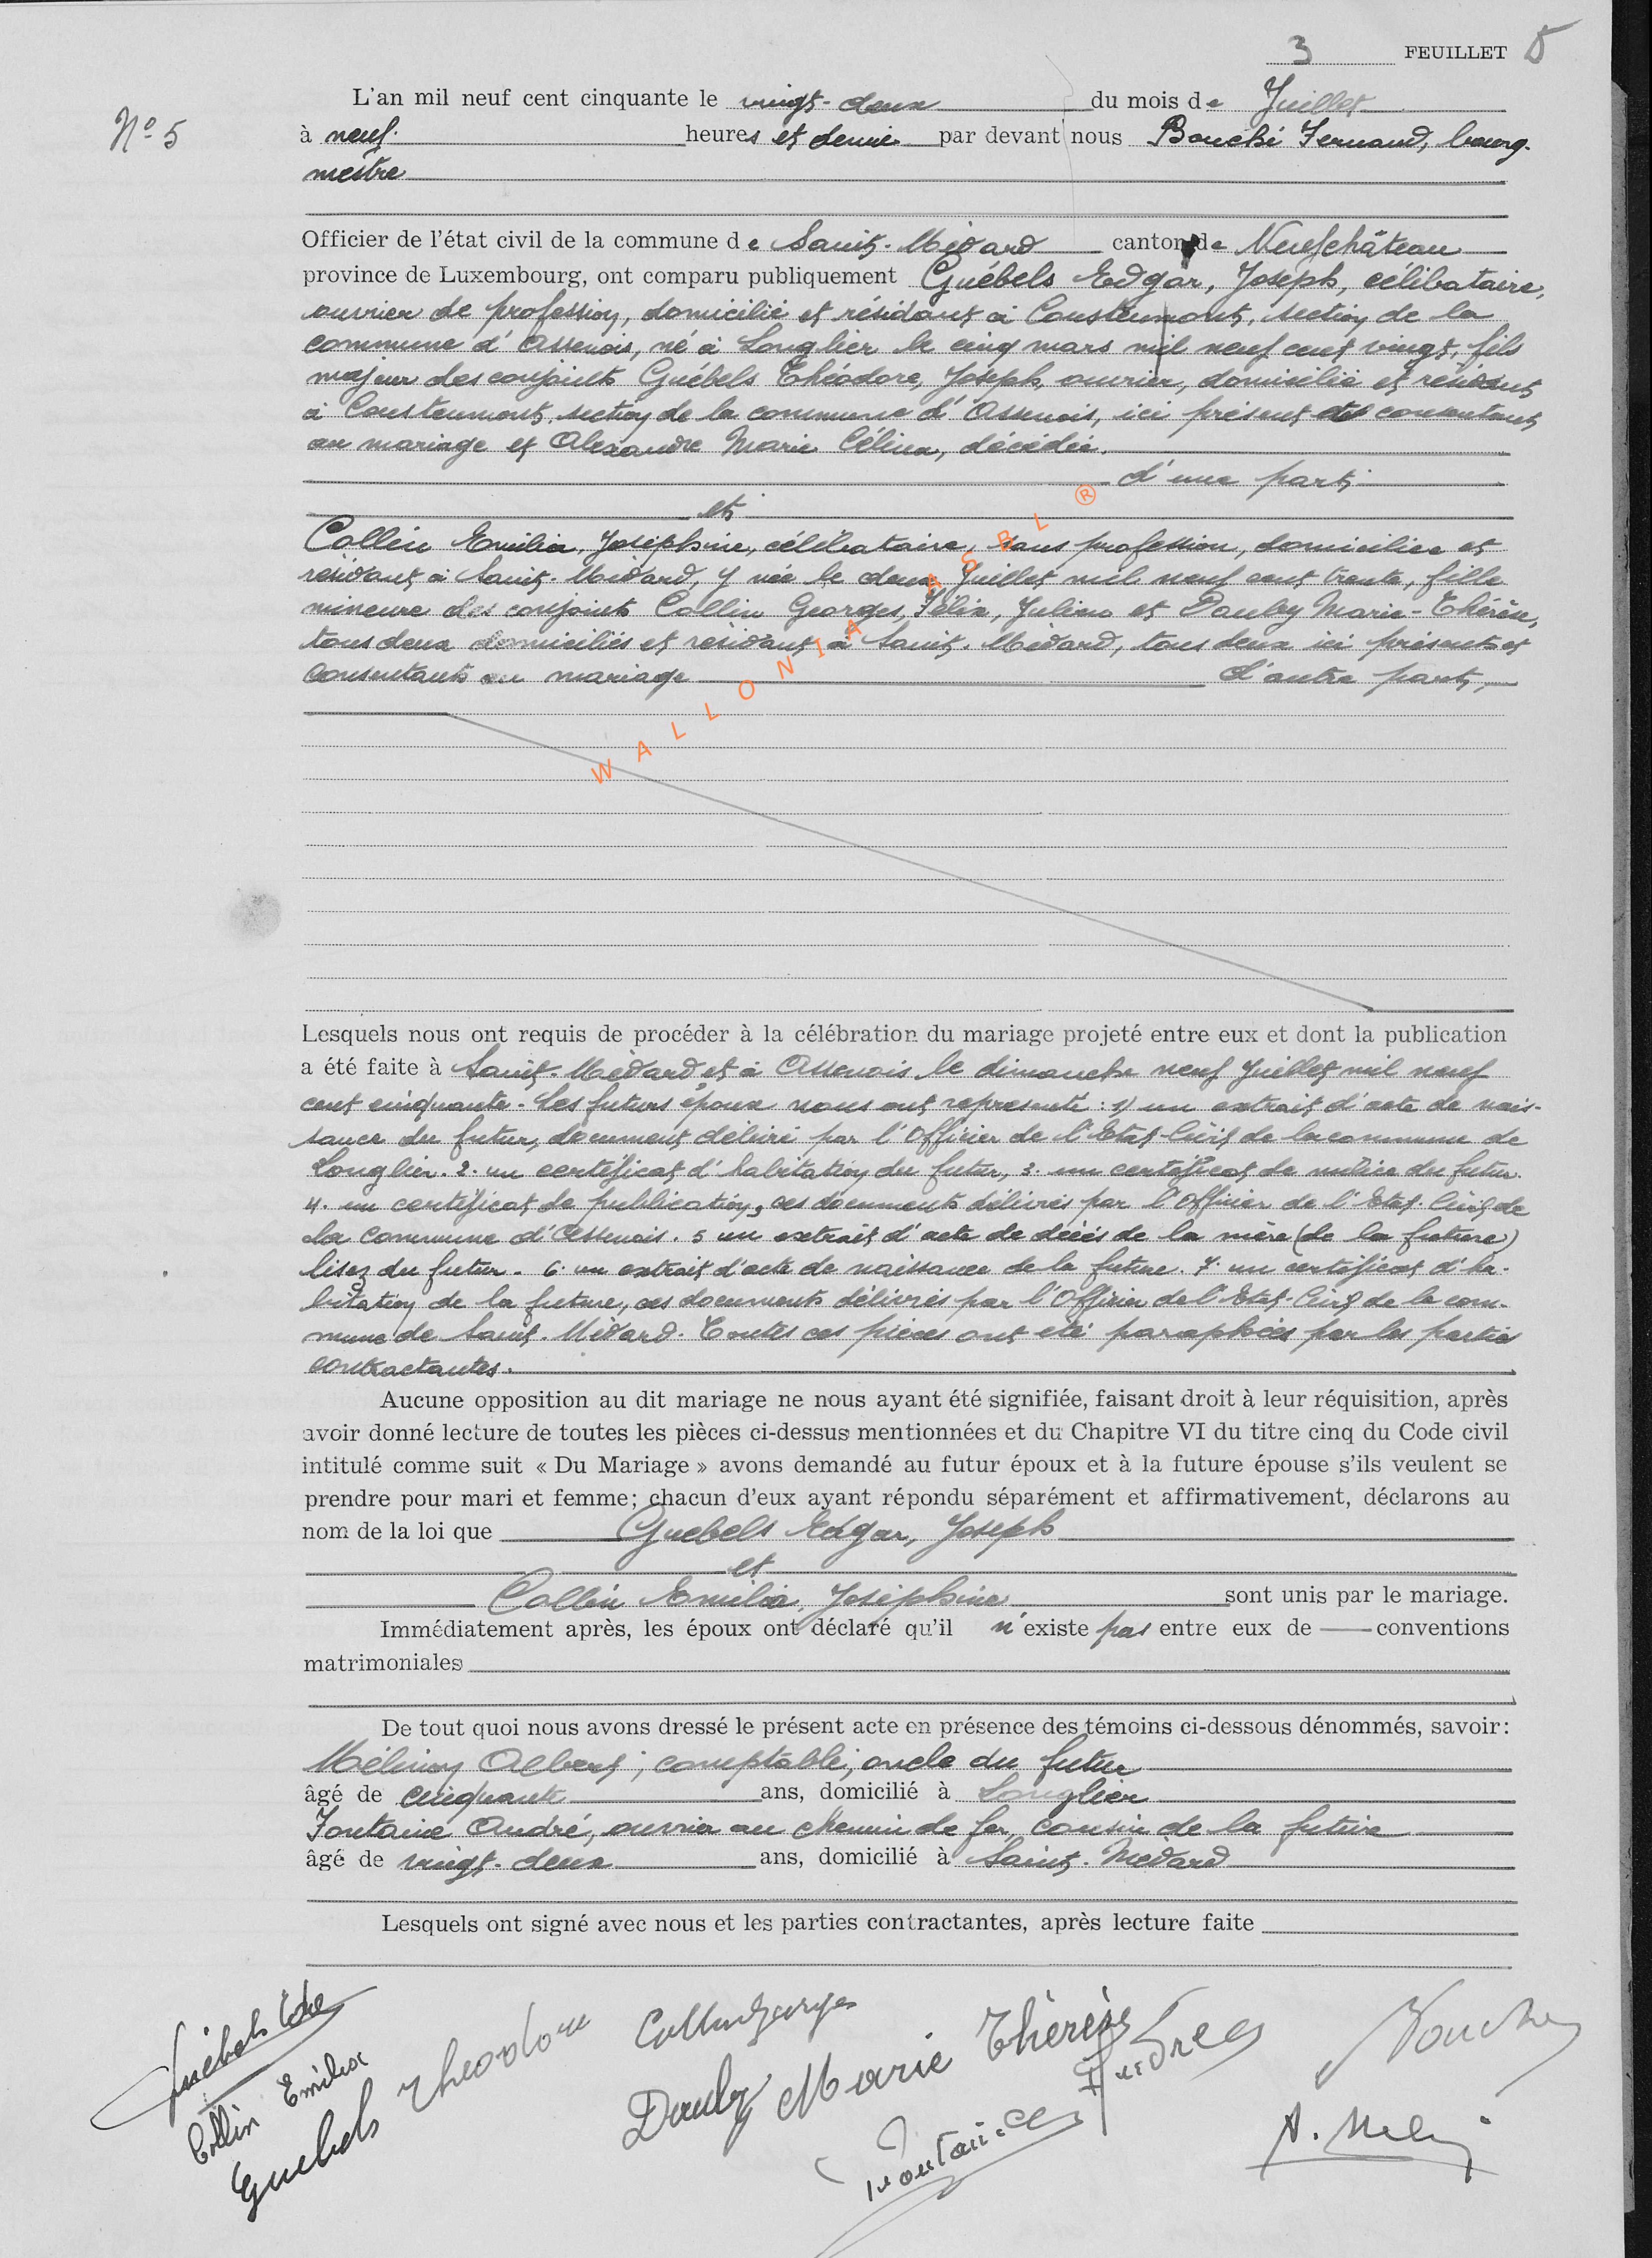 3 FEUILLET 5
N° 5
L'an mil neuf cent cinquante le vingt-deux du mois de Juillet
à neuf heures et demie par devant nous Bouché Fernand, bourg-
mestre
Officier de l'état civil de la commune de Saint-Médard canton de Neufchâteau
province de Luxembourg, ont comparu publiquement Guébels Edgar, Joseph, célibataire,
ouvrier de profession, domicilié et résidant à Coustumont, section de la
commune d'Assenois, né à Longlier le cinq mars mil neuf cent vingt, fils
majeur des conjoints Guébels Théodore, Joseph, ouvrier, domicilié et résidant
à Coustumont, section de la commune d'Assenois, ici présent et consentant
au mariage et Alexandre Marie Célina, décédée.
d'une part
et
Collin Emilia, Joséphine, célibataire, sans profession, domiciliée et
résidant à Saint-Médard, y née le deux Juillet mil neuf cent trente, fille
mineure des conjoints Collin Georges, Félix, Julien et Dauby Marie-Thérèse,
tous deux domiciliés et résidant à Saint-Médard, tous deux ici présents et
consentants au mariage d'autre part,
WALLONIA ASBL ®
Lesquels nous ont requis de procéder à la célébration du mariage projeté entre eux et dont la publication
a été faite à Saint-Médard et à Assenois le dimanche neuf Juillet mil neuf
cent cinquante. Les futurs époux nous ont représenté : 1) un extrait d'acte de nais-
sance du futur, document délivré par l'Officier de l'Etat-Civil de la commune de
Longlier. 2. un certificat d'habitation du futur, 3. un certificat de milice du futur.
4. un certificat de publication, ces documents délivrés par l'Officier de l'Etat-Civil de
la Commune d'Assenois. 5 un extrait d'acte de décès de la mère (de la future)
lisez du futur. 6. un extrait d'acte de naissance de la future. 7. un certificat d'ha-
bitation de la future, ces documents délivrés par l'Officier de l'Etat-Civil de la com-
mune de Saint-Médard. Toutes ces pièces ont été paraphées par les parties
contractantes.
Aucune opposition au dit mariage ne nous ayant été signifiée, faisant droit à leur réquisition, après
avoir donné lecture de toutes les pièces ci-dessus mentionnées et du Chapitre VI du titre cinq du Code civil
intitulé comme suit « Du Mariage » avons demandé au futur époux et à la future épouse s'ils veulent se
prendre pour mari et femme; chacun d'eux ayant répondu séparément et affirmativement, déclarons au
nom de la loi que Guebels Edgar, Joseph
et
Collin Emilia, Joséphine sont unis par le mariage.
Immédiatement après, les époux ont déclaré qu'il n'existe pas entre eux de conventions
matrimoniales
De tout quoi nous avons dressé le présent acte en présence des témoins ci-dessous dénommés, savoir:
Mélinon Albert, comptable, oncle du futur
âgé de cinquante ans, domicilié à Longlier
Fontaine André, ouvrier au chemin de fer, cousin de la future
âgé de vingt-deux ans, domicilié à Saint-Médard
Lesquels ont signé avec nous et les parties contractantes, après lecture faite
Guébels
Collin Emilia
Guebels Théodore
Collin Georges
Dauby Marie Thérèse
Fontaine
Bouché